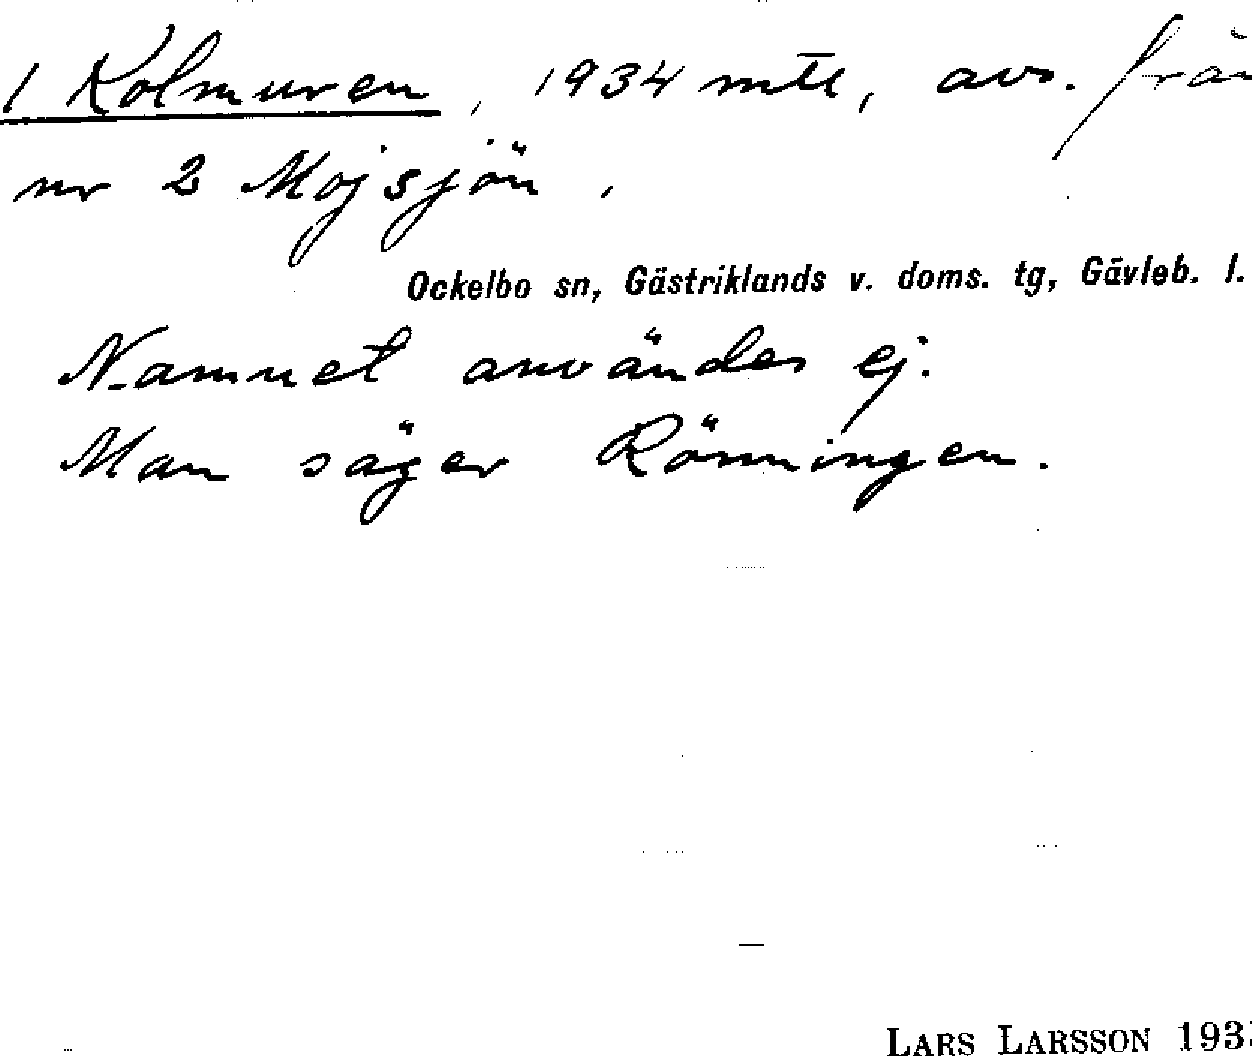 1 Kolmuren, 1934 mtl, avs. från
nr 2 Mojsjön,
Ockelbo sn, Gästriklands v. doms. tg, Gävleb. l.
Namnet användes ej.
Man säger Rönningen.
LARS LARSSON 193